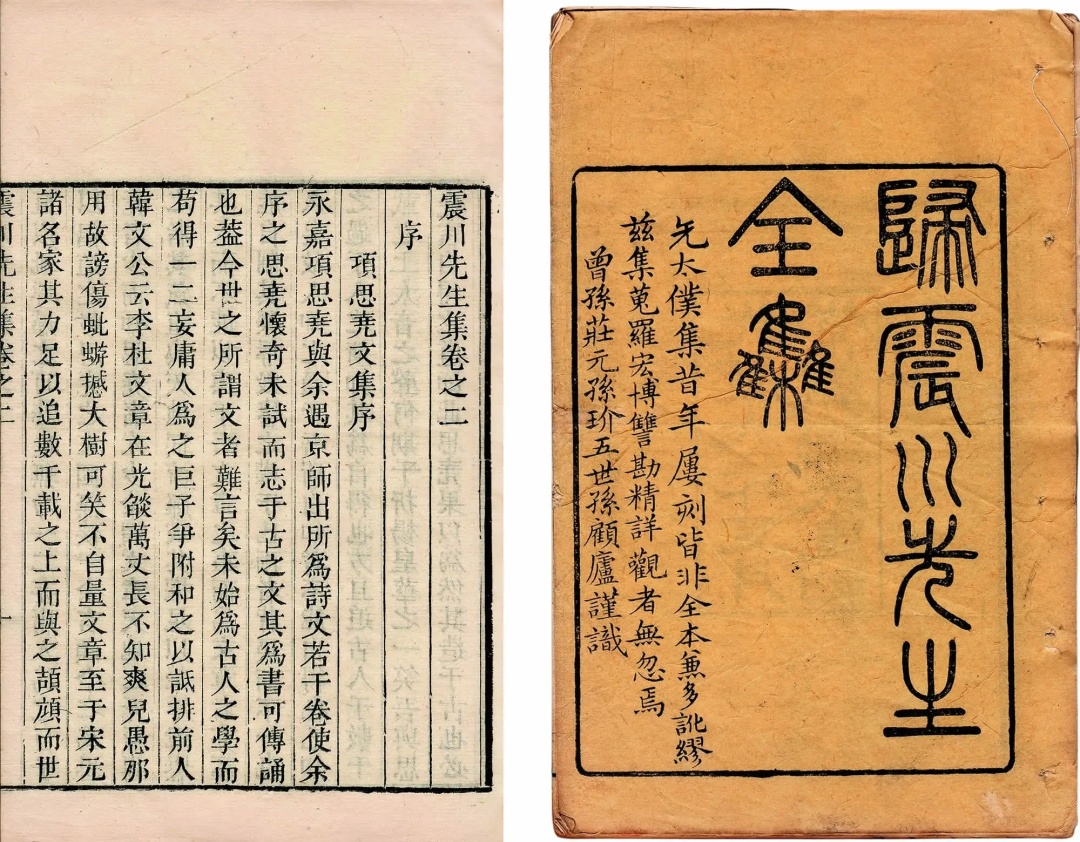 歸震川先生
全集
先太僕集昔年屢刻皆非全本兼多訛繆
茲集蒐羅宏博讐勘精詳觀者無忽焉
曾孫莊元孫玠五世孫顧廬謹識
震川先生集卷之二
序
項思堯文集序
永嘉項思堯與余遇京師出所爲詩文若干卷使余
序之思堯懷奇未試而志于古之文其爲書可傳誦
也葢今世之所謂文者難言矣未始爲古人之學而
苟得一二妄庸人爲之巨子爭附和之以詆排前人
韓文公云李杜文章在光燄萬丈長不知爽兒愚那
用故謗傷蚍蜉撼大樹可笑不自量文章至于宋元
諸名家其力足以追數千載之上而與之頡頏而世
震川先生集卷之二 一